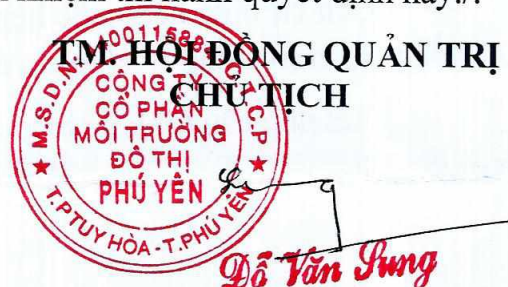 nhiệm thi hành quyết định này./.
TM. HỘI ĐỒNG QUẢN TRỊ
CHỦ TỊCH
CÔNG TY
CỔ PHẦN
MÔI TRƯỜNG
ĐÔ THỊ
PHÚ YÊN
T.P TUY HÒA - T.PHÚ YÊN
Đỗ Văn Sung